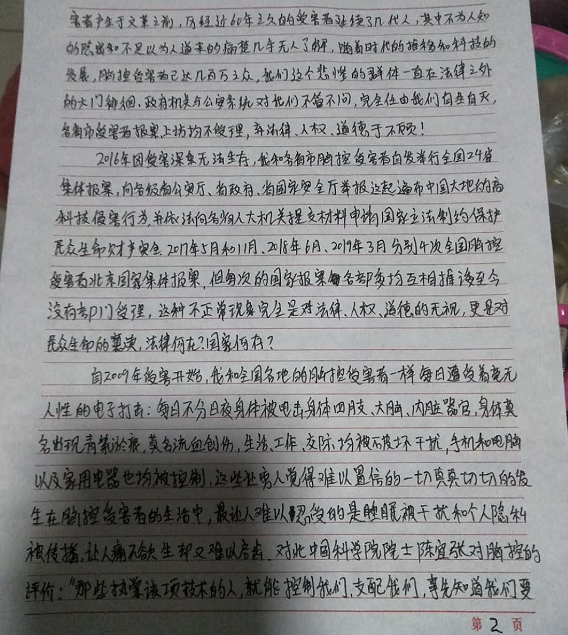 害者产生于文革之前，历经近60年之久的受害者延续了几代人，其中不为人知
的隐密和不足以为人道来的病楚几乎无人了解，随着时代的推移和科技的
发展，脑控受害者已达几百万之众，我们这个悲惨的群体一直在法律之外
的大门徘徊，政府机关与公安系统对我们不管不问，完全任由我们自生自灭，
各省市受害者报案上访均不受理，弃法律、人权、道德于不顾！
2016年因受害深重无法生存，我和各省市脑控受害者自发举行全国24省
集体报案，向各级省公安厅、省政府、省国家安全厅举报这起遍布中国大地的高
科技侵害行为，并依法向各省人大机关提交材料申请国家立法制约保护
民众生命财产安全。2017年5月和11月、2018年6月、2019年3月分别4次全国脑控
受害者北京国家集体报案，但每次的国家报案各部委均互相推诿至今
没有部门受理，这种不正常现象完全是对法律、人权、道德的无视，更是对
民众生命的亵渎，法律何在？国家何存？
自2009年受害开始，我和全国各地的脑控受害者一样每日遭受着毫无
人性的电子打击：每日不分日夜身体被电击身体四肢、大脑、内脏器官，身体莫
名出现青紫淤痕，莫名流血创伤，生活、工作、交际均被破坏干扰，手机和电脑
以及家用电器也均被控制，这些让旁人觉得难以置信的一切真真切切的发
生在脑控受害者的生活中，最让人难以忍受的是睡眠被干扰和个人隐私
被传播，让人痛不欲生却又难以启齿。对此中国科学院院士陈宜张对脑控的
评价：“那些执掌该项技术的人，就能控制我们，支配我们，事先知道我们要
第 2 页